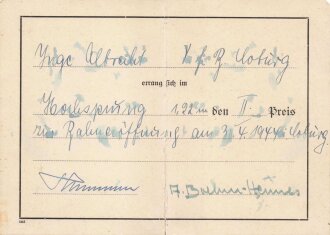 Inge Albrecht V f B Coburg
errang sich im
Hochsprung 1.22 m den II. Preis
zur Bahneröffnung am 3.4.1944 Coburg
A. Boehm-Hennes